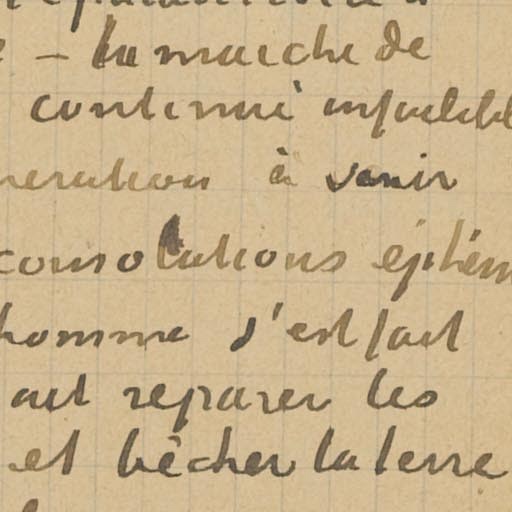 – la marche de
continué infailibl
neration à venir
consolations éphém
homme s'est fait
ait reparer les
et bêcher la terre